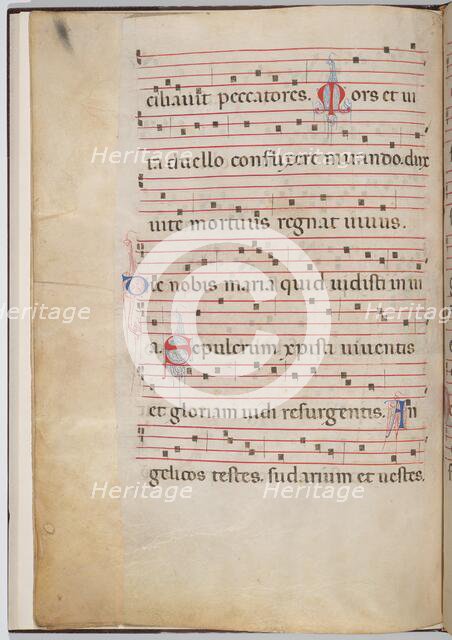 ciliavit peccatores. Mors et vi
ta duello conflixere mirando. dux
vite mortuus regnat vivus.
Dic nobis maria quid vidisti in vi
a. Sepulcrum xpisti viventis
et gloriam vidi resurgentis. An
gelicos testes. sudarium et vestes.
Heritage Heritage Heritage
Heritage Heritage Heritage
Heritage Heritage Heritage